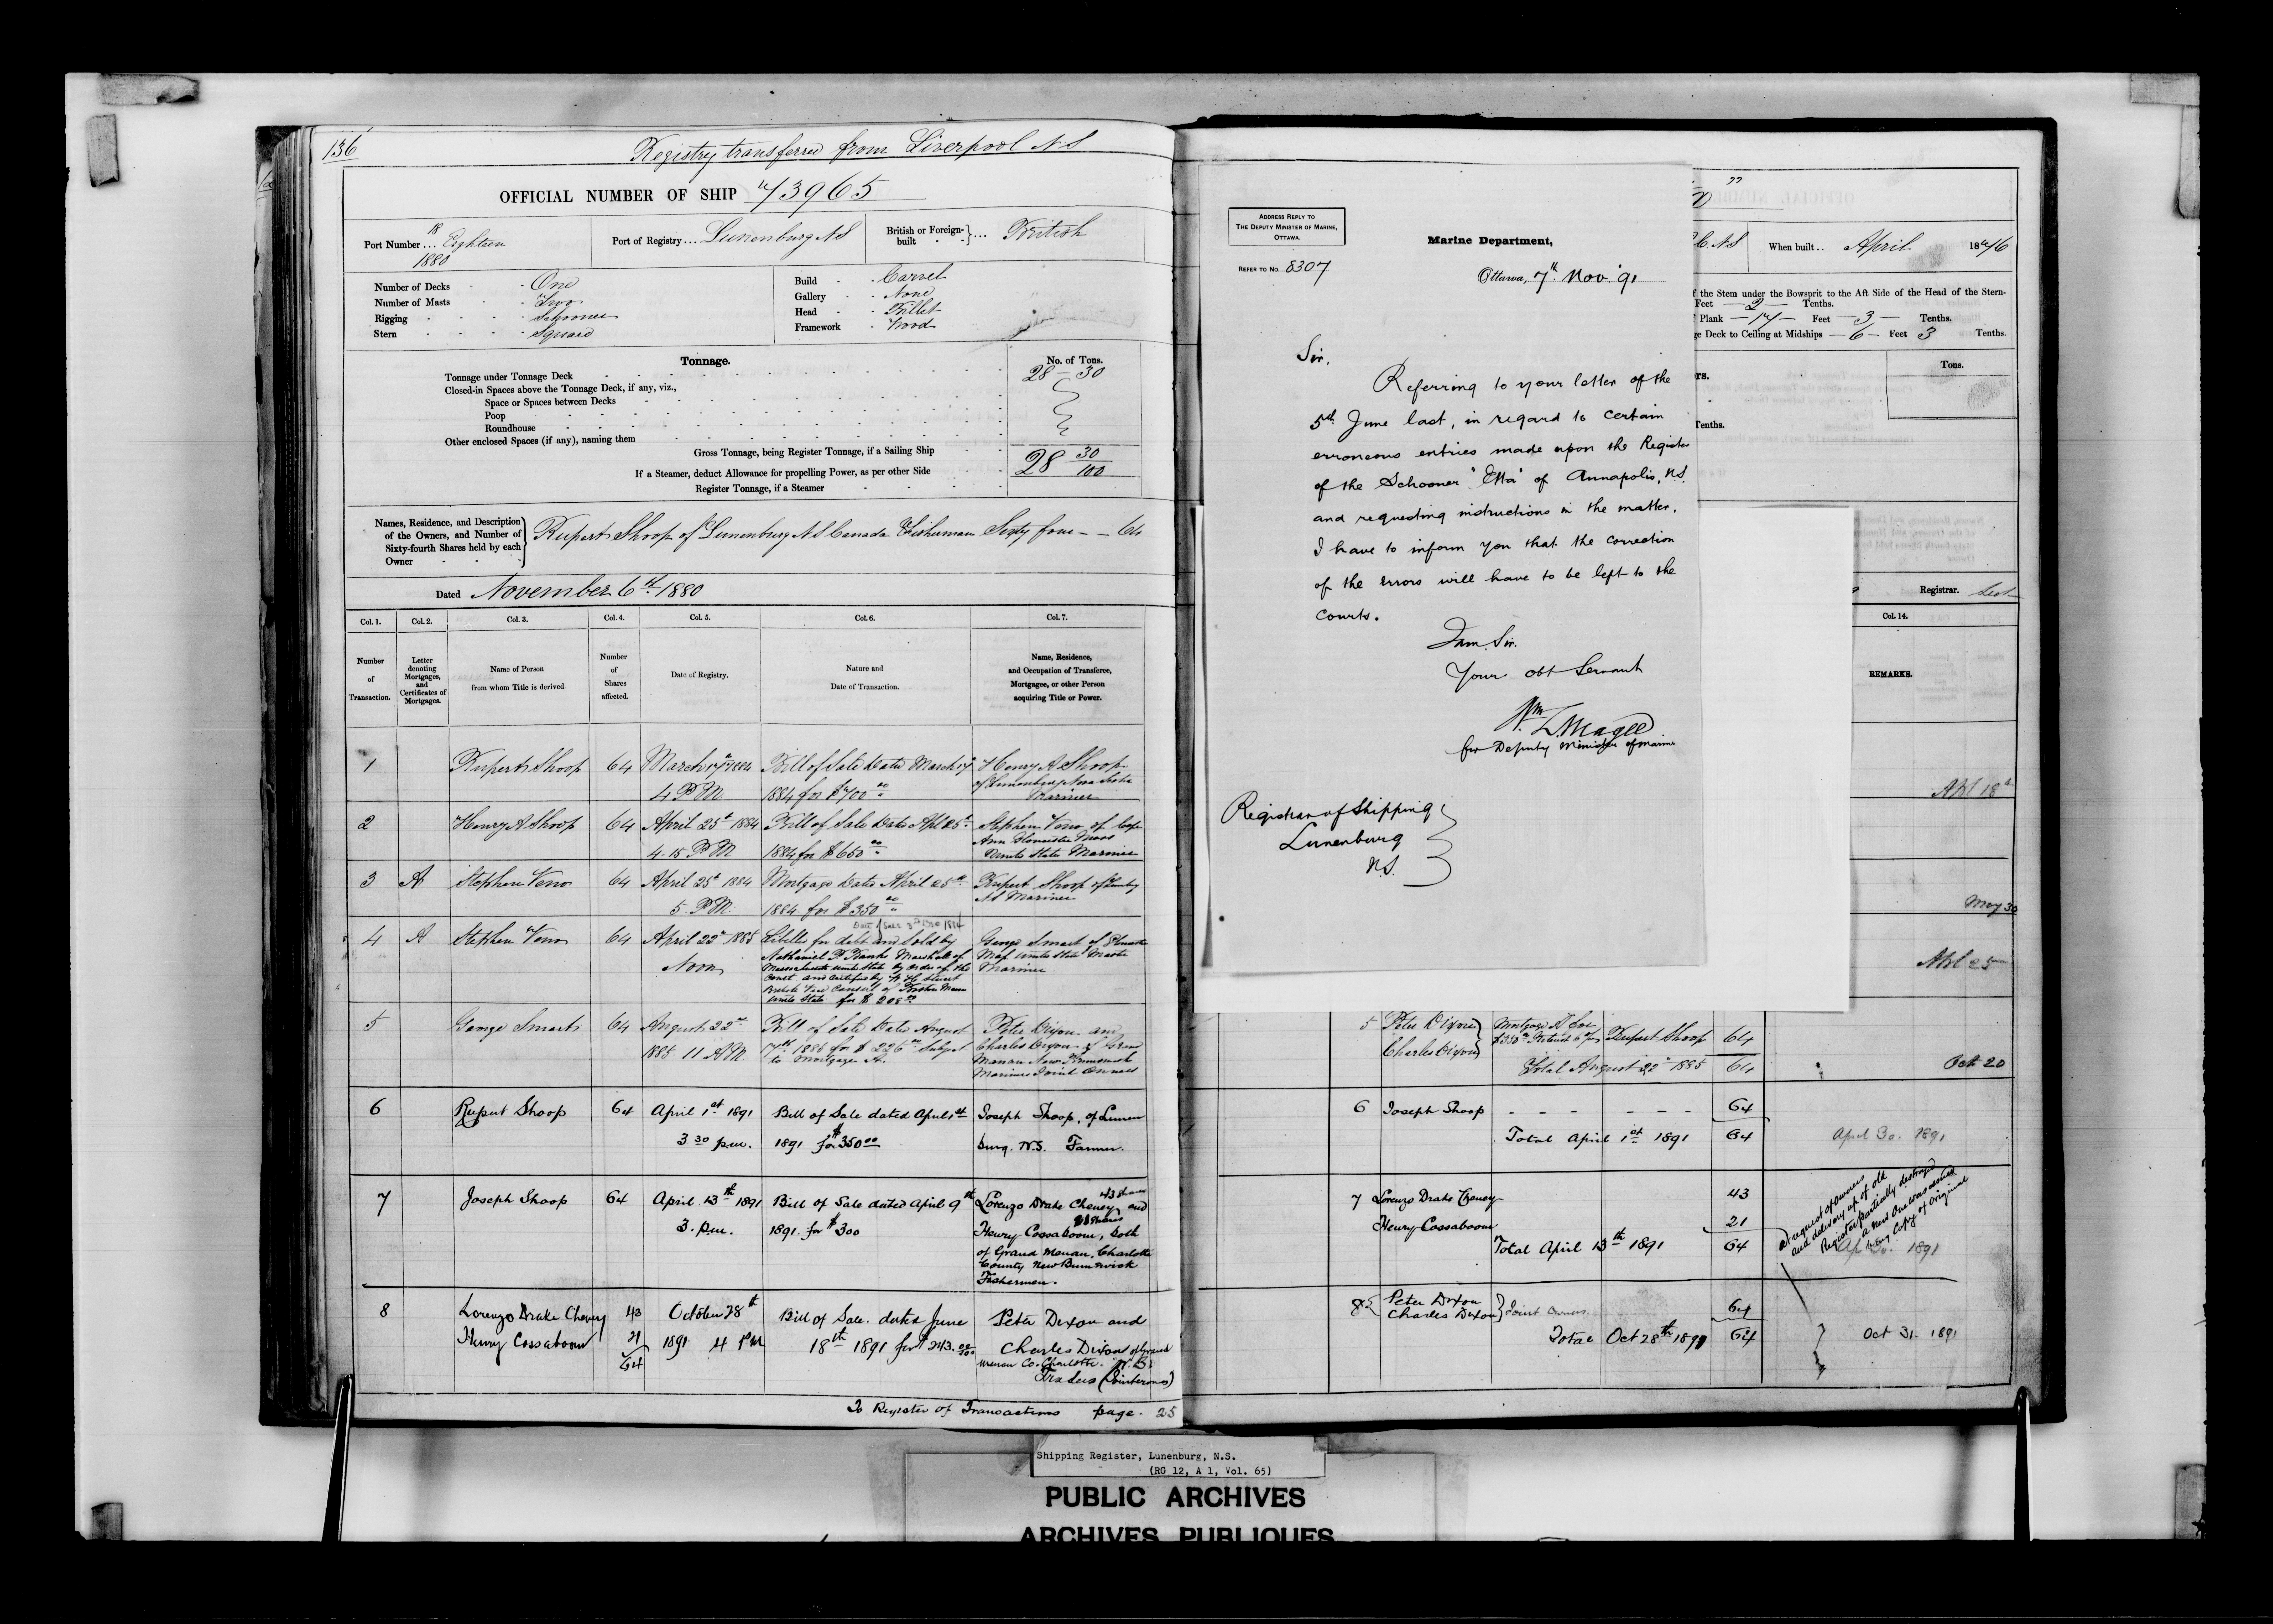 136
Registry transferred from Liverpool NS
OFFICIAL NUMBER OF SHIP 73965
Port Number ... Eighteen
18
1880
Port of Registry ... Lunenburg NS
British or Foreign-built } ... British
Number of Decks - One
Number of Masts - Two
Rigging - Schooner
Stern - Square
Build - Carvel
Gallery - None
Head - Billet
Framework - Wood
Tonnage.
No. of Tons.
Tonnage under Tonnage Deck 28 — 30
Closed-in Spaces above the Tonnage Deck, if any, viz.,
Space or Spaces between Decks
Poop
Roundhouse
Other enclosed Spaces (if any), naming them
Gross Tonnage, being Register Tonnage, if a Sailing Ship 28 30/100
If a Steamer, deduct Allowance for propelling Power, as per other Side
Register Tonnage, if a Steamer
Names, Residence, and Description
of the Owners, and Number of
Sixty-fourth Shares held by each
Owner
Rupert Shoop of Lunenburg NS Canada Fisherman Sixty four — — 64
Dated November 6th 1880
Col. 1. Col. 2. Col. 3. Col. 4. Col. 5. Col. 6. Col. 7.
Number of Transaction.
Letter denoting Mortgages, and Certificates of Mortgages.
Name of Person from whom Title is derived
Number of Shares affected.
Date of Registry.
Nature and Date of Transaction.
Name, Residence, and Occupation of Transferee, Mortgagee, or other Person acquiring Title or Power.
1 Rupert Shoop 64 March 17 1884 Bill of Sale Dated March 17 Henry A Shoop
4 PM 1884 for $700 of Lunenburg Nova Scotia
Mariner
2 Henry A Shoop 64 April 25th 1884 Bill of Sale Dated Apl 25th Stephen Veno of Cape
4-15 PM 1884 for $650 Ann Gloucester Mass
United States Mariner
3 A Stephen Veno 64 April 25th 1884 Mortgage Dated April 25th Rupert Shoop of
5 PM 1884 for $350 NS Mariner
4 A Stephen Veno 64 April 22nd 1885 Libelled for debt and Sold by George Smart of
Noon Nathaniel P Banks Marshall of Mass United States Master
Massachusetts United States by order of the Mariner
Court and certified by
British Vice Consul of Boston Mass
United States for $208
5 George Smart 64 August 22nd Bill of Sale Dated August Peter Dixon and
1885 11 AM 7th 1885 for $226 Subject Charles Dixon of Grand
to Mortgage A. Manan New Brunswick
Mariners Joint Owners
6 Rupert Shoop 64 April 1st 1891 Bill of Sale dated April 1st Joseph Shoop, of Lunen
3 30 p.m. 1891 for $350 00 burg. N.S. Farmer.
7 Joseph Shoop 64 April 13th 1891 Bill of Sale dated April 9th Lorenzo Drake Cheney 43 shares and
3. p.m. 1891. for $300 21 Shares
Henry Cossaboom, both
of Grand Manan, Charlotte
County New Brunswick
Fishermen.
8 Lorenzo Drake Cheney 43 October 28th Bill of Sale. dated June Peter Dixon and
Henry Cossaboom 21 1891 4 PM 18th 1891 for $243. Charles Dixon of Grand
64 Manan Co. Charlotte. N.B.
Traders (Joint owners)
To Register of Transactions page. 25
ADDRESS REPLY TO
THE DEPUTY MINISTER OF MARINE,
OTTAWA.
REFER TO No. 8307
Marine Department,
Ottawa, 7th Nov. 91
Sir.
Referring to your letter of the
5th June last, in regard to certain
erroneous entries made upon the Register
of the Schooner "Etta" of Annapolis, N.S.
and requesting instructions in the matter,
I have to inform you that the correction
of the errors will have to be left to the
courts.
I am, Sir.
Your obt Servant
Wm L. Magee
for Deputy Minister of Marine
Registrar of Shipping
Lunenburg
N.S.
NS When built .. April 1876
f the Stem under the Bowsprit to the Aft Side of the Head of the Stern-
Feet — 2 — Tenths.
Plank — 17 — Feet — 3 — Tenths.
ge Deck to Ceiling at Midships — 6 — Feet 3 Tenths.
Tons.
Tenths.
Registrar.
Col. 14.
REMARKS.
May 30
5 Peter Dixon } Mortgage A for Rupert Shoop 64
Charles Dixon
Total August 22nd 1885 64
Oct 20
6 Joseph Shoop - - - - - - 64
Total April 1st 1891 64
April 30. 1891
7 Lorenzo Drake Cheney 43
Henry Cossaboom 21
Total April 13th 1891 64
At request of owners
and delivery up of old
Register partially destroyed
a new One was
being Copy of original
Ap 30. 1891
8 { Peter Dixon
Charles Dixon } Joint Owners 64
Total Oct 28th 1891 64
Oct 31. 1891
Shipping Register, Lunenburg, N.S.
(RG 12, A 1, Vol. 65)
PUBLIC ARCHIVES
ARCHIVES PUBLIQUES